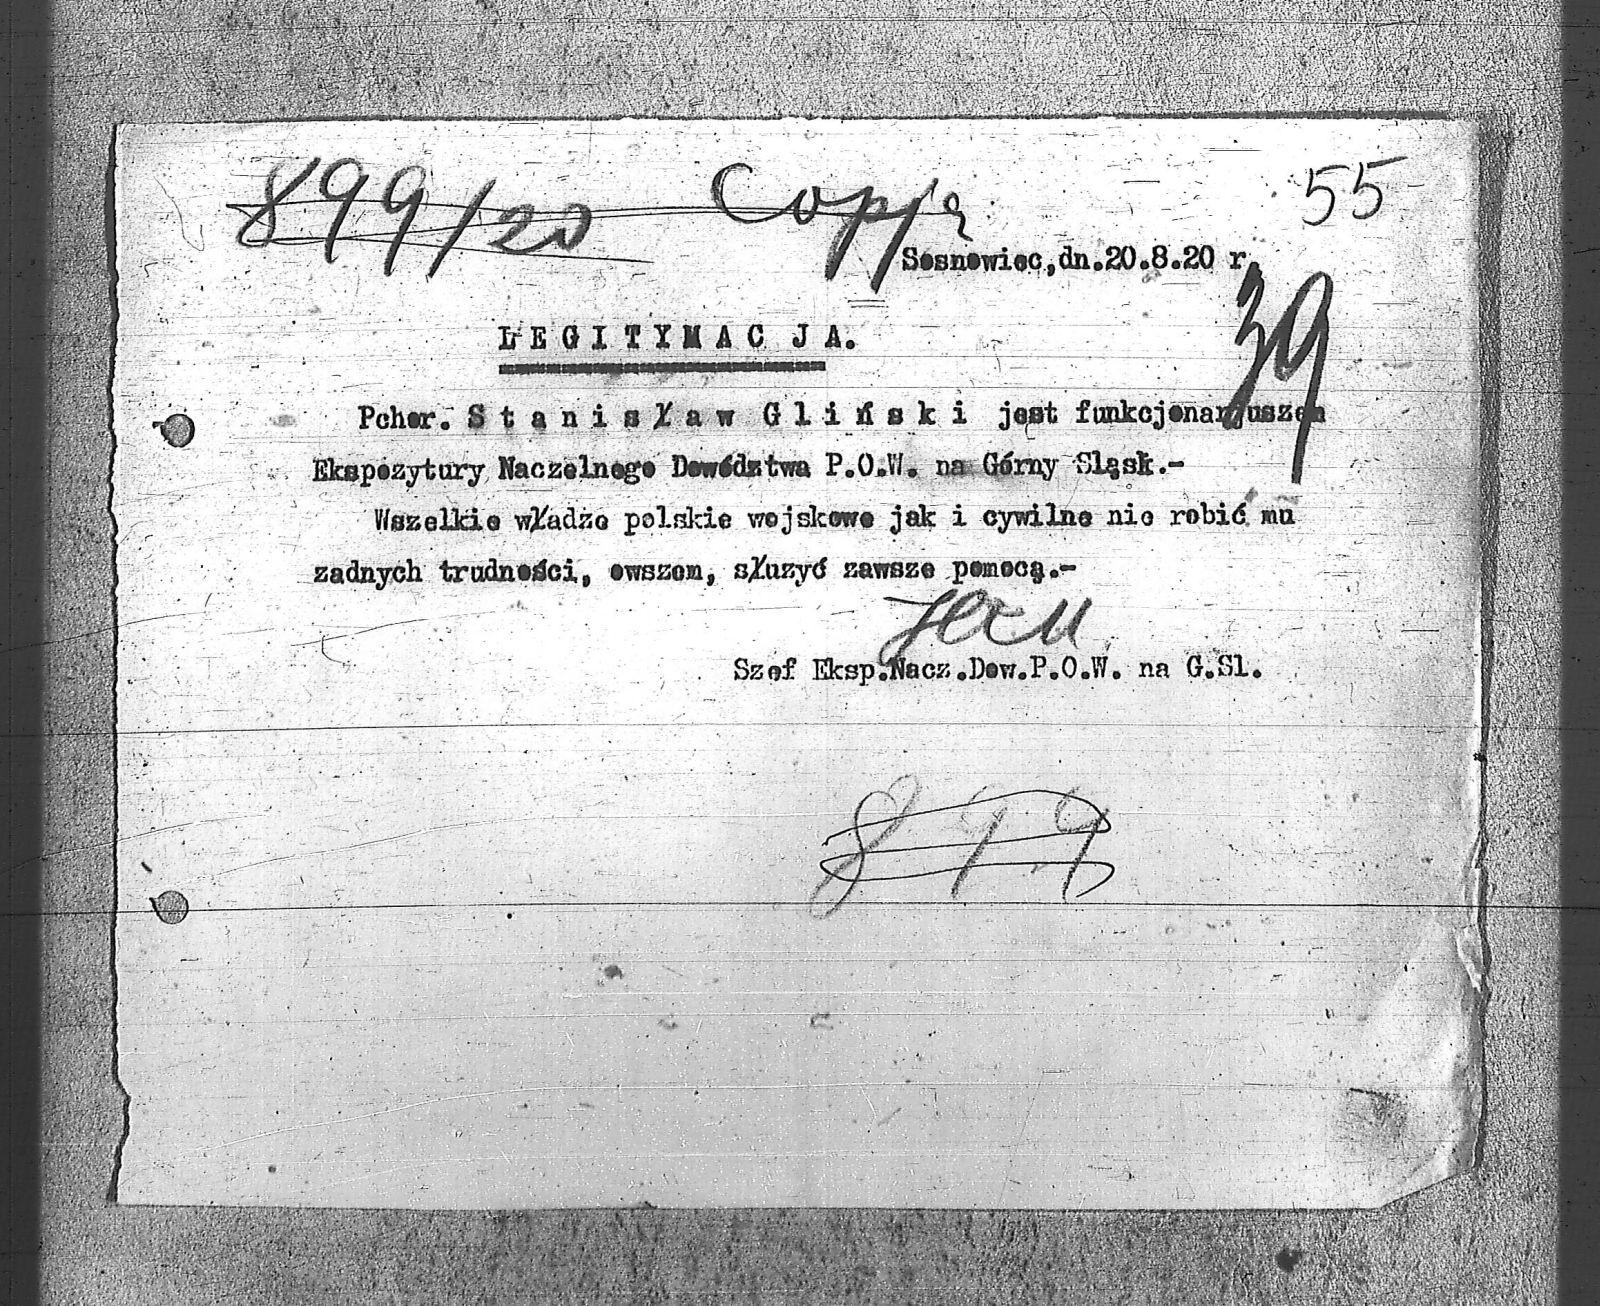 899/20 Copja 55
Sosnowiec, dn.20.8.20 r.
39
LEGITYMACJA.
Pchor. Stanisław Gliński jest funkcjonarjuszem
Ekspozytury Naczelnego Dowództwa P.O.W. na Górny Sląsk.-
Wszelkie władze polskie wojskowe jak i cywilne nie robić mu
zadnych trudności, owszem, słuzyć zawsze pomocą.-
Szef Eksp.Nacz.Dow.P.O.W. na G.Sl.
899